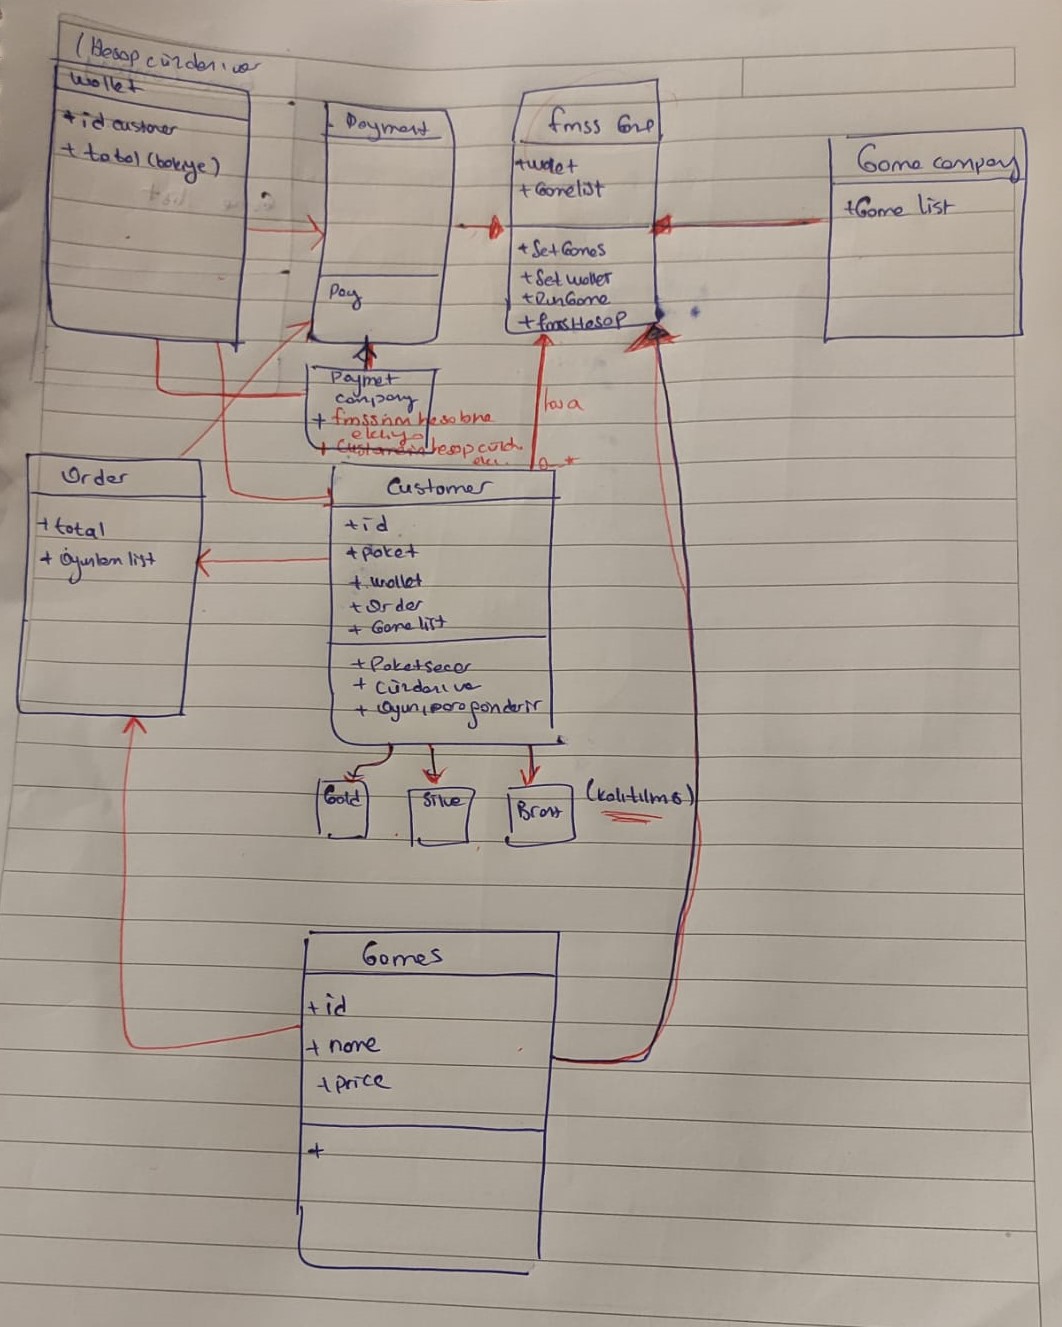 (Hesap cüzdanı var
Wallet
+ id customer
+ total (bakiye)
Payment
Pay
fmss Grp
+ Wallet
+ Gamelist
+ Set Games
+ Set wallet
+ RunGame
+ fmssHesap
Game company
+ Game list
Paymet
company
+ fmssnin hesabına
ekliyo
+ Customerin hesap cüzd.
ekl.
has a
0..*
Order
+ total
+ oyunların list
Customer
+ id
+ paket
+ wallet
+ Order
+ Game list
+ Paket seçer
+ Cüzdanı var
+ Oyun, para gönderir
Gold
Silve
Bron
(kalıtılma)
Games
+ id
+ name
+ price
+